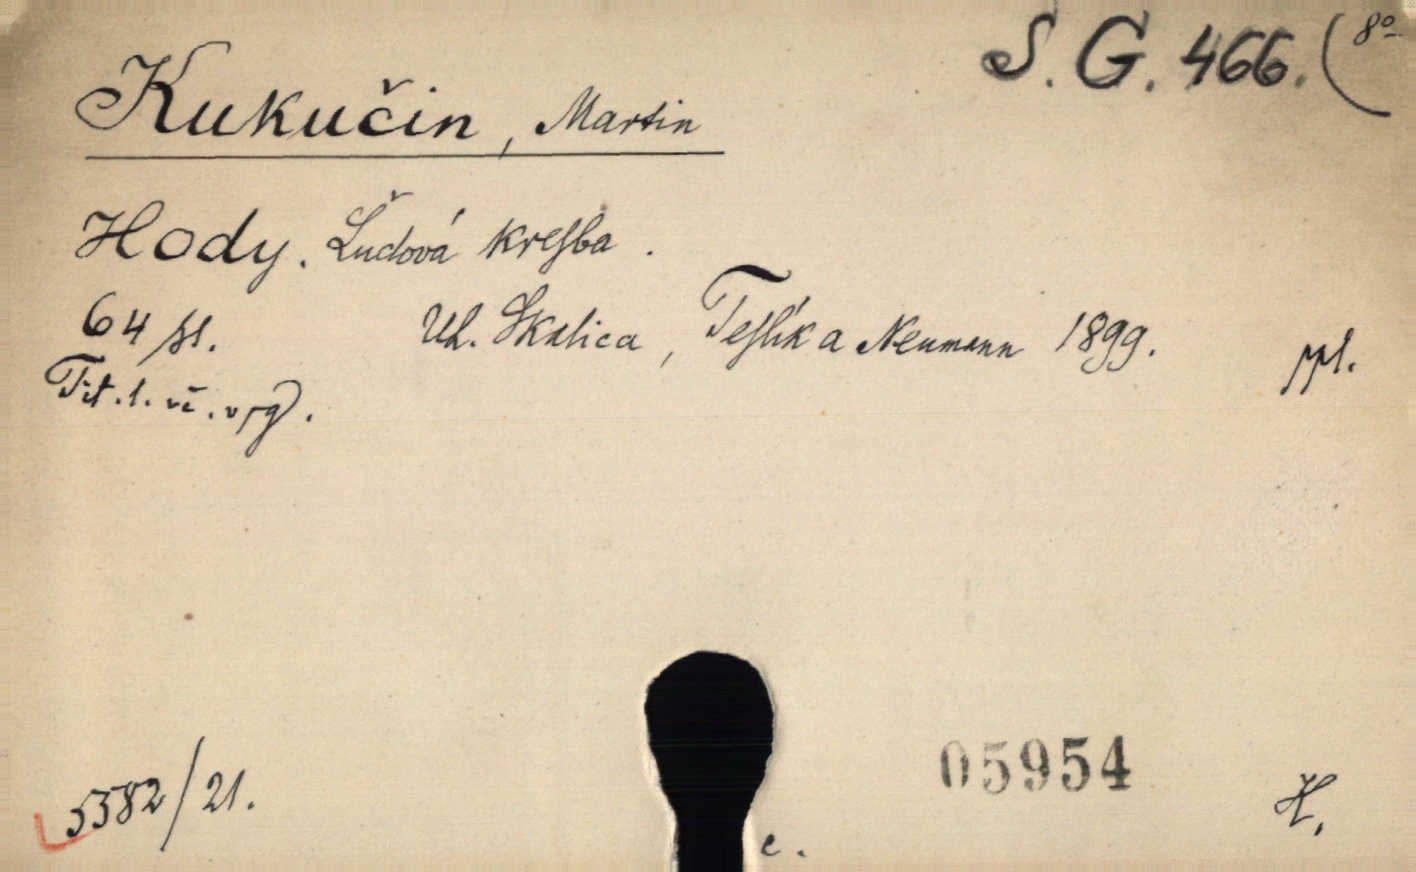 S. G. 466. (8º
Kukučin, Martin
Hody. Ľudová kresba.
64 st. Uh. Skalica, Teslík a Neumann 1899. ppl.
Tit. l.
5382/21.
05954
H.
c.